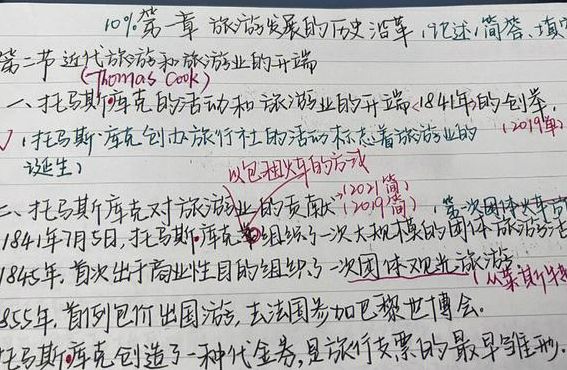 10% 第一章 旅游发展的历史沿革 (论述,简答,填空
第二节 近代旅游和旅游业的开端
(Thomas Cook)
一、托马斯·库克的活动和旅游业的开端<1841年>的创举.
(托马斯·库克创办旅行社的活动标志着旅游业的 (2019单)
诞生)
以包租火车的方式
二、托马斯库克对旅游业的贡献 (2021简) (2019简) (第一次团体火车
1841年7月5日,托马斯·库克组织了一次大规模的团体旅游活
1845年,首次出于商业性目的组织了一次团体观光旅游.
855年,首例包价出国游,去法国参加巴黎世博会.
托马斯·库克创造了一种代金券,是旅行支票的最早雏形.